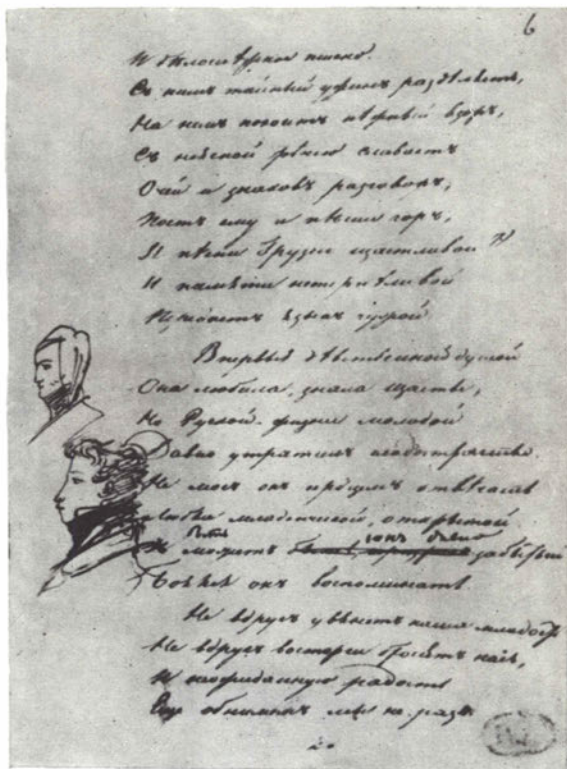 6
И бѣлоснѣжное пшено.
Съ нимъ тайный ужинъ раздѣляетъ,
На немъ покоитъ нѣжный взоръ,
Съ неясной рѣчью сливаетъ
Очей и знаковъ разговоръ,
Поетъ ему и пѣсни горъ,
И пѣсни Грузіи щастливой
И памяти нетерпѣливой
языкъ чужой
Впервые дѣвственной душой
Она любила, знала щастье,
Но Руской жизни молодой
Давно утратилъ сладострастье.
Не могъ онъ сердцемъ отвѣчать
Любви младенческой, открытой
Быть можетъ сонъ любви забытой
Боялся онъ воспоминать.
Не вдругъ увянетъ наша младость
Не вдругъ восторги бросятъ насъ,
И неожиданную радость
Еще обнимемъ мы не разъ